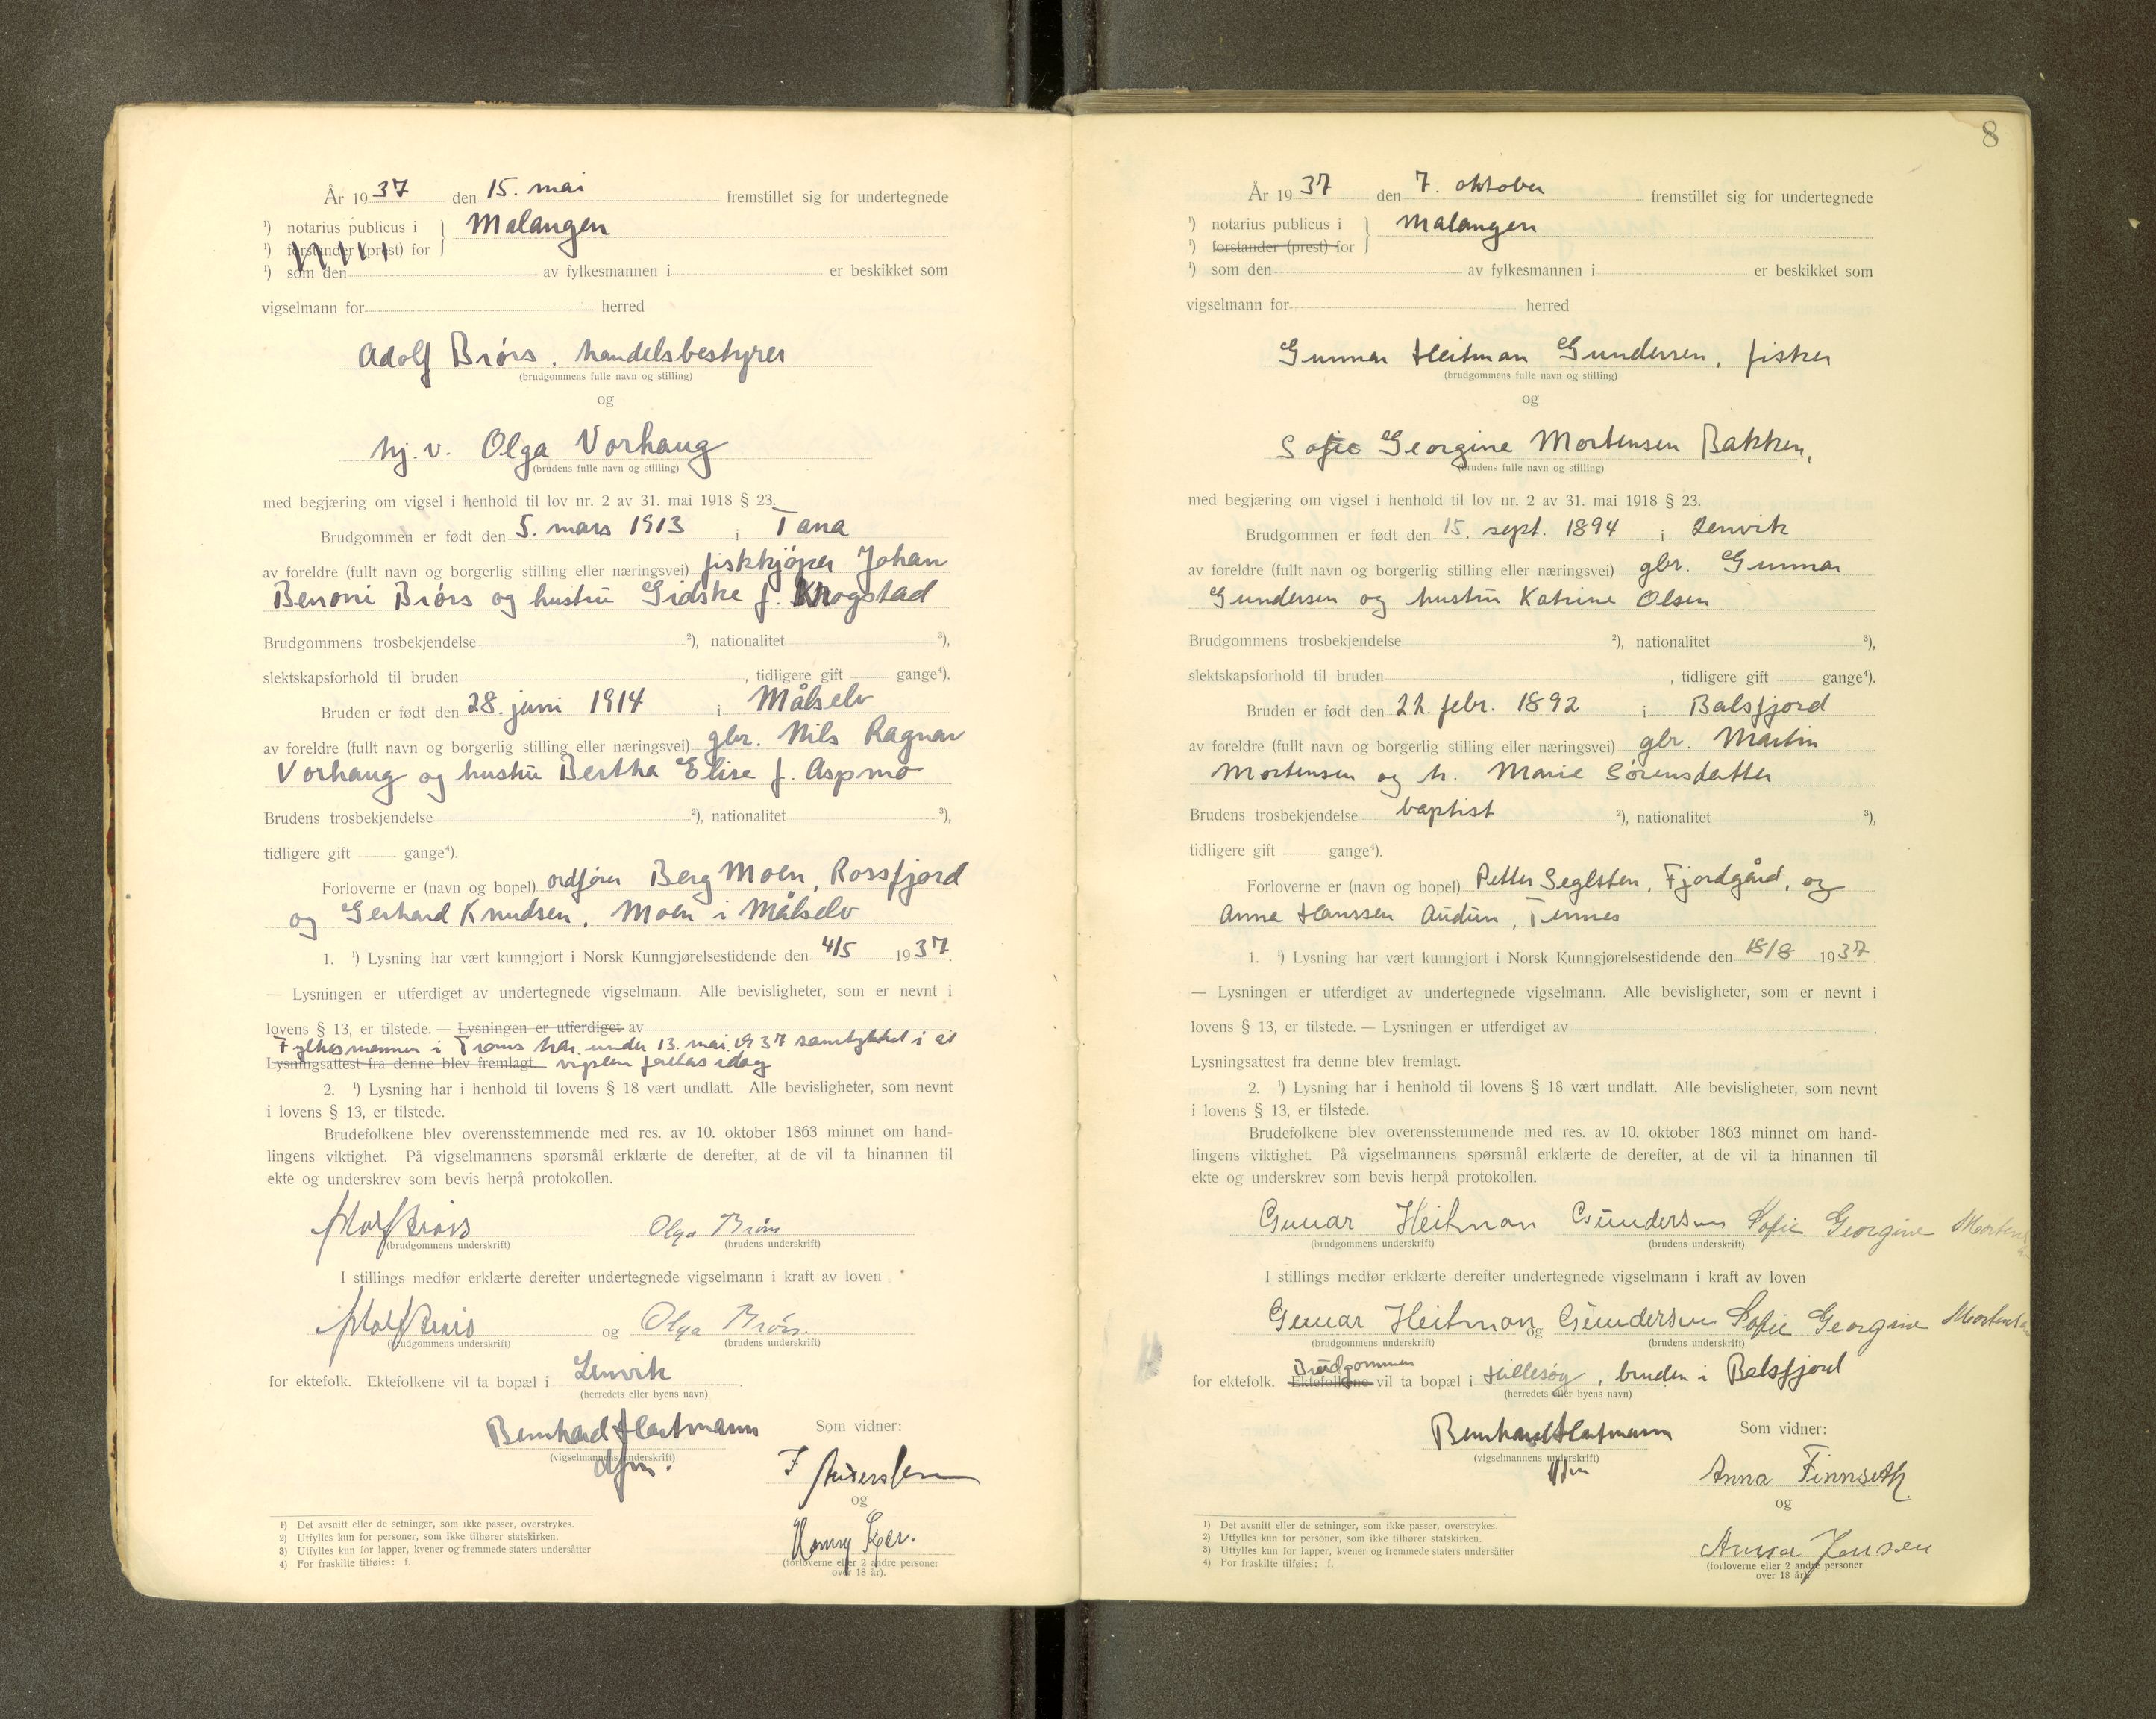 År 1937 den 15. mai fremstillet sig for undertegnede
¹) notarius publicus i } Malangen
¹) forstander (prest) for
¹) som den av fylkesmannen i er beskikket som
vigselmann for herred
Adolf Brørs. handelsbestyrer
(brudgommens fulle navn og stilling)
og
hj. v. Olga Vorhaug
(brudens fulle navn og stilling)
med begjæring om vigsel i henhold til lov nr. 2 av 31. mai 1918 § 23.
Brudgommen er født den 5. mars 1913 i Tana
av foreldre (fullt navn og borgerlig stilling eller næringsvei) fiskkjøper Johan
Benoni Brørs og hustru Gidske f. Krogstad
Brudgommens trosbekjendelse ²), nationalitet ³),
slektskapsforhold til bruden , tidligere gift gange⁴).
Bruden er født den 28. juni 1914 i Målselv
av foreldre (fullt navn og borgerlig stilling eller næringsvei) gbr. Nils Ragnar
Vorhaug og hustru Bertha Elise f. Aspmo
Brudens trosbekjendelse ²), nationalitet ³),
tidligere gift gange⁴).
Forloverne er (navn og bopel) ordfører Berg Moen, Rossfjord
og Gerhard Knudsen, Moen i Målselv
1. ¹) Lysning har vært kunngjort i Norsk Kunngjørelsestidende den 4/5 1937.
— Lysningen er utferdiget av undertegnede vigselmann. Alle bevisligheter, som er nevnt i
lovens § 13, er tilstede. — Lysningen er utferdiget av
Fylkesmannen i Troms har under 13. mai 1937 samtykket i at
Lysningsattest fra denne blev fremlagt. vigslen foretas idag
2. ¹) Lysning har i henhold til lovens § 18 vært undlatt. Alle bevisligheter, som nevnt
i lovens § 13, er tilstede.
Brudefolkene blev overensstemmende med res. av 10. oktober 1863 minnet om hand-
lingens viktighet. På vigselmannens spørsmål erklærte de derefter, at de vil ta hinannen til
ekte og underskrev som bevis herpå protokollen.
Adolf Brørs Olga Brørs
(brudgommens underskrift) (brudens underskrift)
I stillings medfør erklærte derefter undertegnede vigselmann i kraft av loven
Adolf Brørs og Olga Brørs.
(brudgommens underskrift) (brudens underskrift)
for ektefolk. Ektefolkene vil ta bopæl i Lenvik
(herredets eller byens navn)
Bernhard Hartmann Som vidner:
(vigselmannens underskrift)
dfm.
F Anderssen
og
(forloverne eller 2 andre personer
over 18 år).
1) Det avsnitt eller de setninger, som ikke passer, overstrykes.
2) Utfylles kun for personer, som ikke tilhører statskirken.
3) Utfylles kun for lapper, kvener og fremmede staters undersåtter
4) For fraskilte tilføies: f.
8
År 1937 den 7. oktober fremstillet sig for undertegnede
¹) notarius publicus i } Malangen
¹) forstander (prest) for
¹) som den av fylkesmannen i er beskikket som
vigselmann for herred
Gunnar Heitman Gundersen, fisker
(brudgommens fulle navn og stilling)
og
Sofie Georgine Mortensen Bakken,
(brudens fulle navn og stilling)
med begjæring om vigsel i henhold til lov nr. 2 av 31. mai 1918 § 23.
Brudgommen er født den 15. sept. 1894 i Lenvik
av foreldre (fullt navn og borgerlig stilling eller næringsvei) gbr. Gunnar
Gundersen og hustru Katrine Olsen
Brudgommens trosbekjendelse ²), nationalitet ³),
slektskapsforhold til bruden , tidligere gift gange⁴).
Bruden er født den 22. febr. 1892 i Balsfjord
av foreldre (fullt navn og borgerlig stilling eller næringsvei) gbr. Martin
Mortensen og h. Marie Sørensdatter
Brudens trosbekjendelse baptist ²), nationalitet ³),
tidligere gift gange⁴).
Forloverne er (navn og bopel) Petter Seglsten, Fjordgård, og
Anna Hanssen Audun, Tennes
1. ¹) Lysning har vært kunngjort i Norsk Kunngjørelsestidende den 18/8 1937.
— Lysningen er utferdiget av undertegnede vigselmann. Alle bevisligheter, som er nevnt i
lovens § 13, er tilstede. — Lysningen er utferdiget av .
Lysningsattest fra denne blev fremlagt.
2. ¹) Lysning har i henhold til lovens § 18 vært undlatt. Alle bevisligheter, som nevnt
i lovens § 13, er tilstede.
Brudefolkene blev overensstemmende med res. av 10. oktober 1863 minnet om hand-
lingens viktighet. På vigselmannens spørsmål erklærte de derefter, at de vil ta hinannen til
ekte og underskrev som bevis herpå protokollen.
Gunar Heitman Gundersen Sofie Georgine Mortensen
(brudgommens underskrift) (brudens underskrift)
I stillings medfør erklærte derefter undertegnede vigselmann i kraft av loven
Gunar Heitman og Gundersen Sofie Georgine Mortensen
(brudgommens underskrift) (brudens underskrift)
Brudgommen
for ektefolk. Ektefolkene vil ta bopæl i Hillesøy, bruden i Balsfjord
(herredets eller byens navn)
Bernhard Hartmann Som vidner:
(vigselmannens underskrift)
dfm
Anna Finnseth
og
Anna Jensen
(forloverne eller 2 andre personer
over 18 år).
1) Det avsnitt eller de setninger, som ikke passer, overstrykes.
2) Utfylles kun for personer, som ikke tilhører statskirken.
3) Utfylles kun for lapper, kvener og fremmede staters undersåtter
4) For fraskilte tilføies: f.